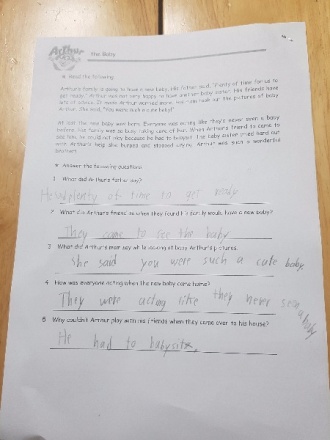 Arthur
The Baby
Read the following
Arthur's family is going to have a new baby. His father said, "Plenty of time for us to
get ready." Arthur was not very happy to have another baby sister. His friends have
lots of advice. It made Arthur worried more. His mom took out the pictures of baby
Arthur. She said, "You were such a cute baby!"
At last the new baby was here. Everyone acting like they've never seen a baby
before. His family was so busy taking care of her. When Arthur's friend to came to
see him, he could not play because he had to babysit. The baby sister cried hard but
with Arthur's help she burped and stopped crying. Arthur was such a wonderful
brother!
Answer the following questions
1. What did Arthur's father say?
plenty of time to get ready
2. What did Arthur's friends do when they found his family would have a new baby?
They came to see the baby
3. What did Arthur's mom say while looking at baby Arthur's pictures
she said you were such a cute baby
4. How was everyone acting when the new baby came home?
They were acting like they never seen a baby
5. Why couldn't Arthur play with his friends when they came over to his house?
He had to babysit.